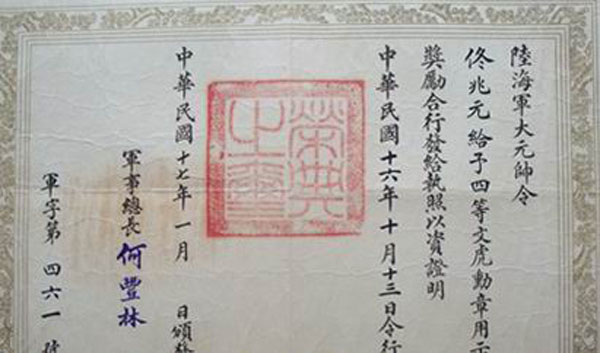 陸海軍大元帥令
佟兆元給予四等文虎勳章用示
獎勵合行發給執照以資證明
中華民國十六年十月十三日令行
榮典之璽
中華民國十七年一月 日頒發
軍事總長 何豐林
軍字第四六一號